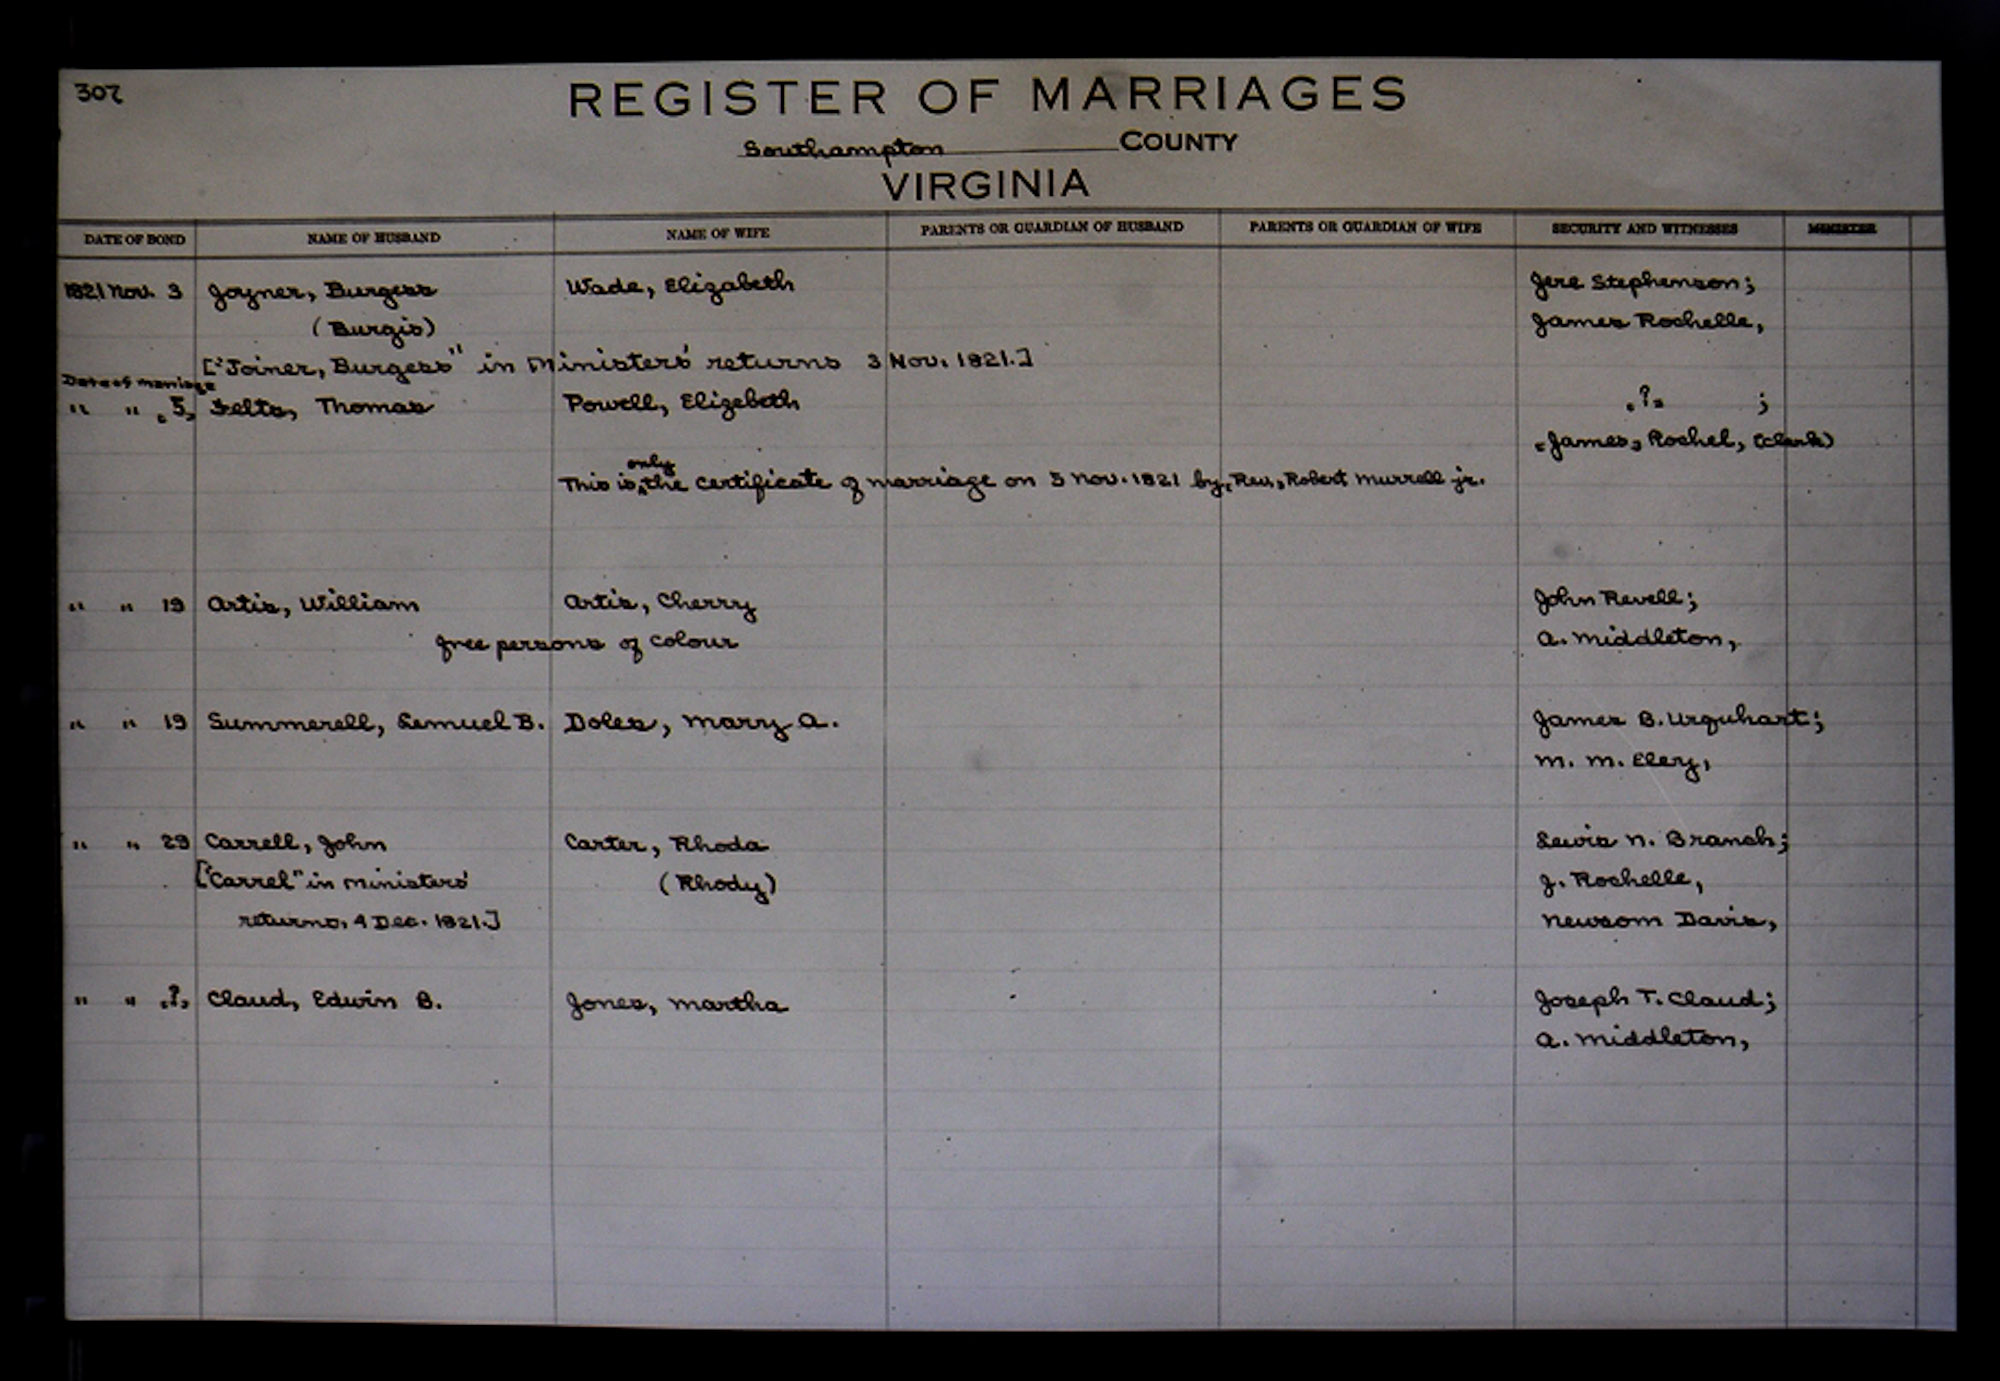 307
REGISTER OF MARRIAGES
Southampton COUNTY
VIRGINIA
DATE OF BOND NAME OF HUSBAND NAME OF WIFE PARENTS OR GUARDIAN OF HUSBAND PARENTS OR GUARDIAN OF WIFE SECURITY AND WITNESSES MINISTER
1821 Nov. 3 Joyner, Burgess Wade, Elizabeth Jere Stephenson;
(Burgis) James Rochelle,
["Joiner, Burgess" in Ministers' returns 3 Nov. 1821.]
Date of marriage
" " 5, Felts, Thomas Powell, Elizebeth ? ;
James, Rochel, (Clerk)
only
This is the certificate of marriage on 5 Nov. 1821 by Rev. Robert Murrell jr.
" " 19 Artis, William Artis, Cherry John Revell;
free persons of colour A. Middleton,
" " 19 Summerell, Lemuel B. Doles, Mary A. James B. Urquhart;
M. M. Elery,
" " 29 Carrell, John Carter, Rhoda Lewis N. Branch;
["Carrel" in Ministers' (Rhody) J. Rochelle,
returns, 4 Dec. 1821.] Newsom Davis,
" " ? Claud, Edwin B. Jones, Martha Joseph T. Claud;
A. Middleton,